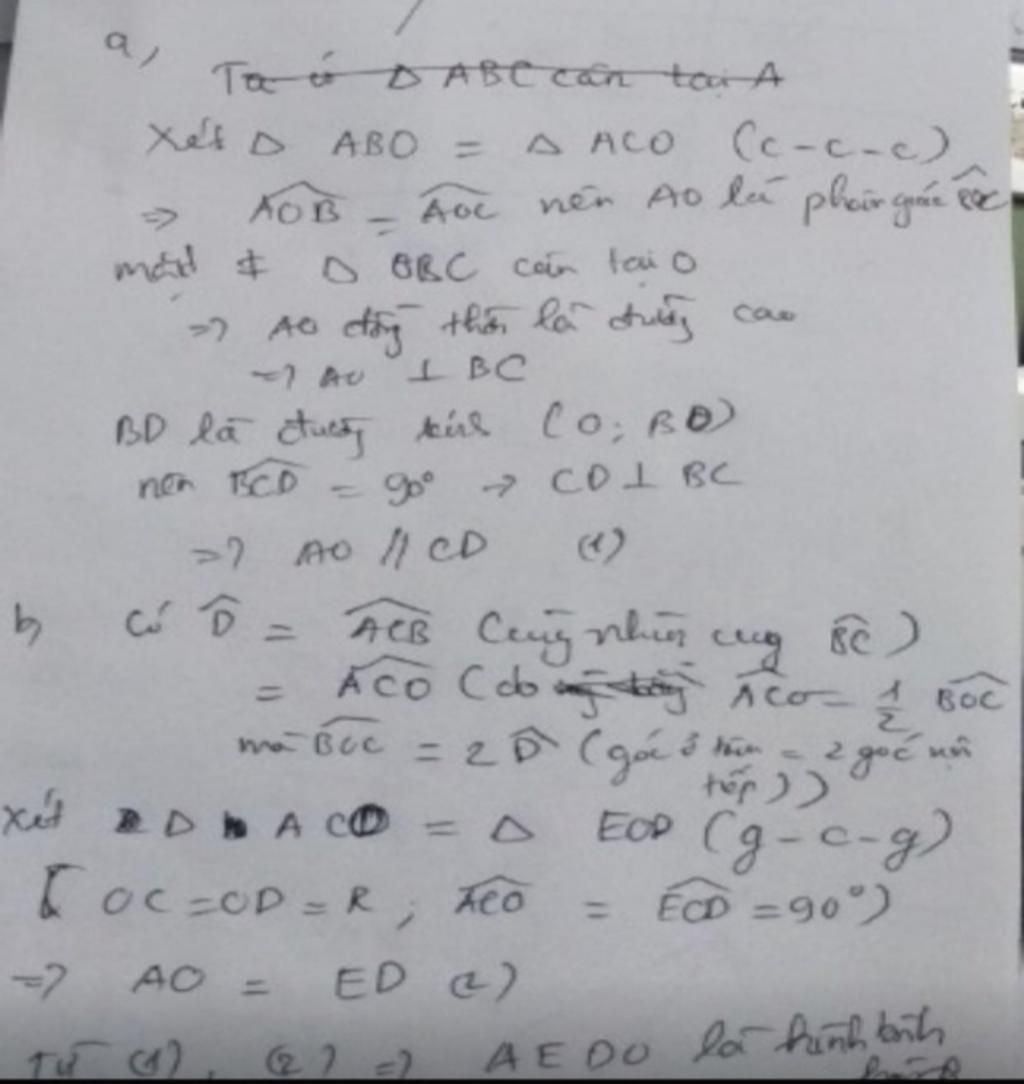 a,
Ta có Δ ABC cân tại A
Xét Δ ABO = Δ ACO (c-c-c)
=> \widehat{AOB} = \widehat{AOC} nên AO là phân giác \widehat{BOC}
mặt ≠ Δ OBC cân tại O
=> AO đồng thời là đường cao
=> AO ⊥ BC
BD là đường kính (O; BO)
nên \widehat{BCD} = 90° → CD ⊥ BC
=> AO // CD (1)
b, Có \widehat{D} = \widehat{ACB} (cùng nhìn cung \widehat{BC})
= \widehat{ACO} (do \widehat{ACO} = \frac{1}{2} \widehat{BOC}
mà \widehat{BOC} = 2 \widehat{D} (góc ở tâm = 2 góc nội
tiếp))
Xét Δ ACO = Δ EOD (g-c-g)
[ OC = OD = R ; \widehat{ACO} = \widehat{ECD} = 90°)
=> AO = ED (2)
Từ (1), (2) => AEDO là hình bình